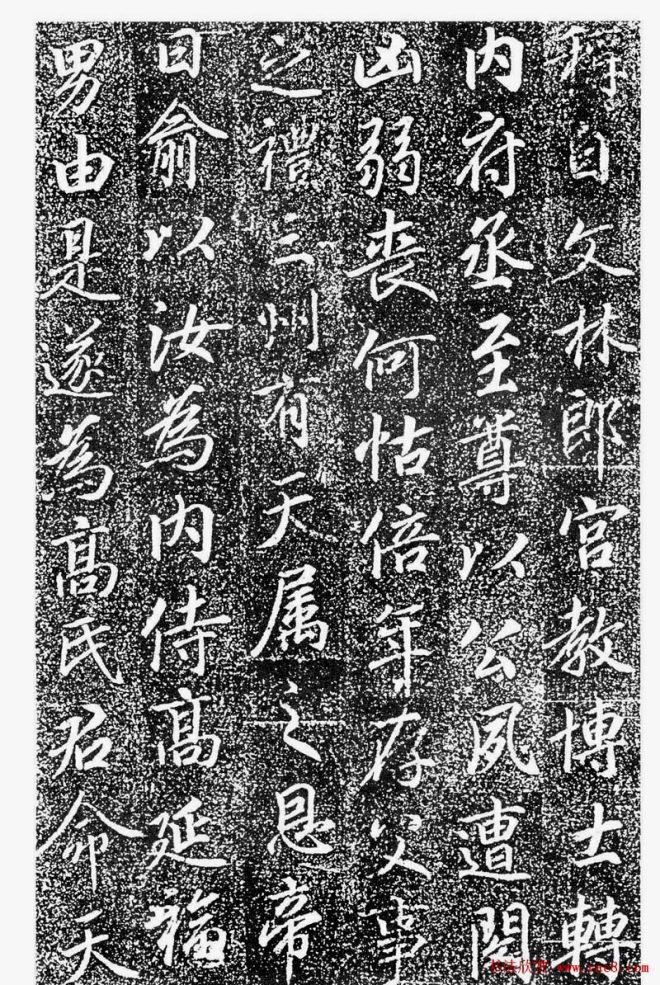 稱自文林郎宫教博士轉
内府丞至尊以公夙遭閔
凶弱喪何怙倍年存父事
之禮三州有天属之恩帝
曰俞以汝為内侍高延福
男由是遂為高氏君命天
书法欣赏 www.yac8.com